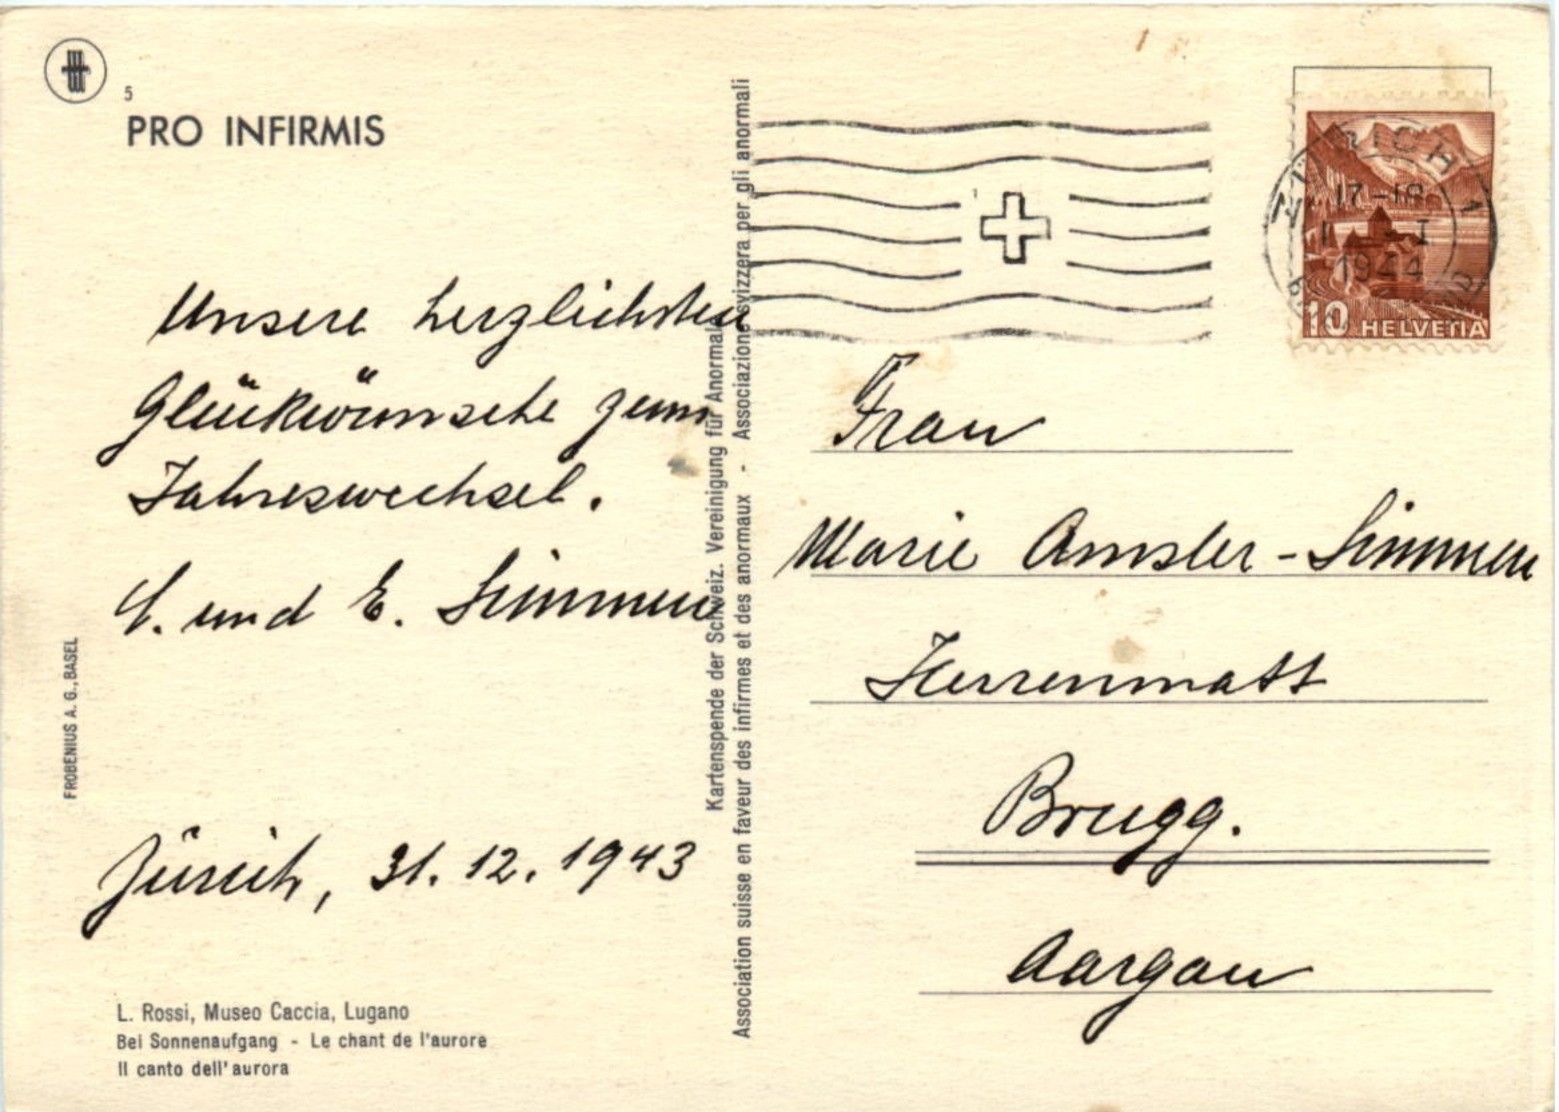 5
PRO INFIRMIS
Unsere herzlichsten
Glückwünsche zum
Jahreswechsel.
und E. Simmen
Zürich, 31. 12. 1943
FROBENIUS A. G., BASEL
L. Rossi, Museo Caccia, Lugano
Bei Sonnenaufgang - Le chant de l'aurore
Il canto dell'aurora
Kartenspende der Schweiz. Vereinigung für Anormale
Association suisse en faveur des infirmes et des anormaux - Associazione svizzera per gli anormali
ZÜRICH 1
17-18
I
1944
10 HELVETIA
Frau
Marie Amsler-Simmen
Herrenmatt
Brugg.
Aargau